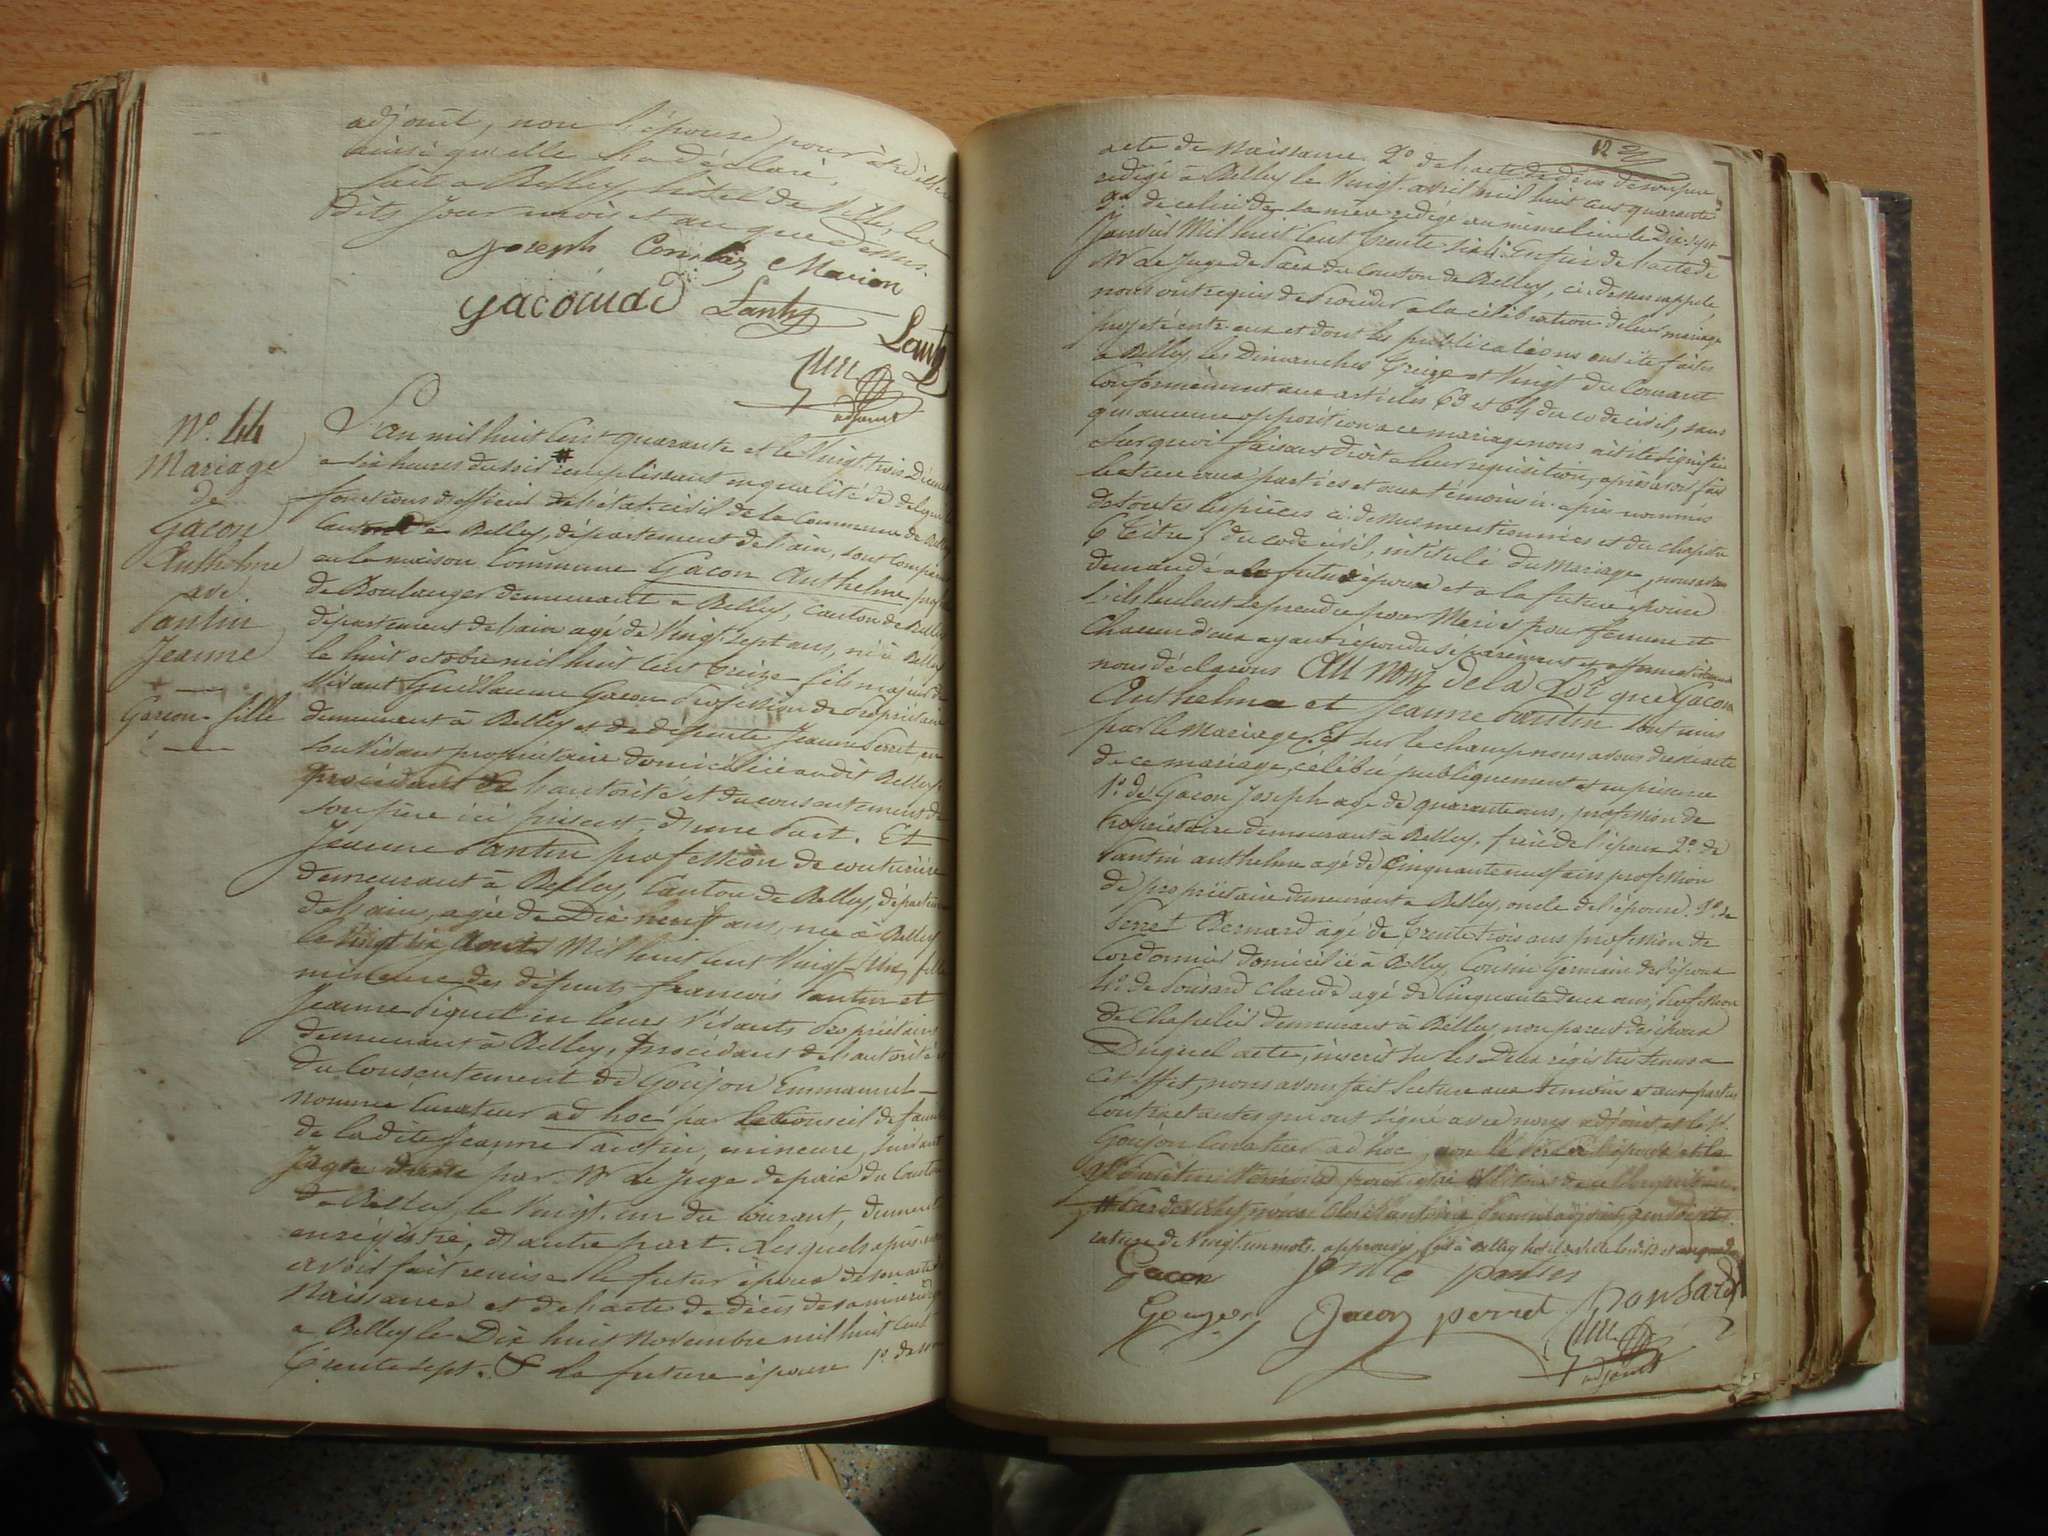 adjoint, non l'épouse pour être
ainsi qu'elle l'a déclaré,
fait à Belley hôtel de Ville, les
dits jour mois et an que dessus.
Joseph Marion
Lanty
Lanty
adjoint
N.º 44
Mariage
de
Gacon
Anthelme
avec
Pantin
Jeanne
Garçon fille
L'an mil huit cent quarante et le Vingt trois Décembre
à six heures du soir # remplissant en qualité de délégué les
fonctions d'officier de l'état civil de la Commune de Belley
Canton de Belley, département de l'ain, sont comparus
en la maison Commune Gacon Anthelme, profession
de Boulanger demeurant à Belley, Canton de Belley
département de l'ain agé de Vingt sept ans, né à Belley
le huit octobre mil huit cent treize fils majeur de
vivant Guillaume Gacon profession de propriétaire
demeurant à Belley et de défunte Jeanne Perret, en
son vivant propriétaire domiciliée au dit Belley,
procédant de l'autorité et du consentement de
son père ici présent, d'une part. Et
Jeanne Pantin profession de couturière
demeurant à Belley, Canton de Belley, département
de l'ain, agée de Dix neuf ans, née à Belley
le Vingt six Aout Mil huit cent Vingt-Un, fille
mineure des défunts francois Pantin et
Jeanne en leurs vivants propriétaires
demeurant à Belley, procédant de l'autorité et
du Consentement de Goujon Emmanuel
nommé Curateur ad hoc par le Conseil de famille
de la dite Jeanne Pantin, mineure, suivant
par Mr le Juge de paix du Canton
de Belley, le Vingt-un du Courant, dument
enrégistré, d'autre part. Lesquels après nous
avoir fait remise le futur époux de son acte de
Naissance et de l'acte de décès de sa mère rédigé
à Belley le Dix huit Novembre mil huit cent
trente sept. & la future épouse 1º de son
acte de Naissance 2º de l'acte de décès de son père
rédigé à Belley le Vingt avril mil huit cent quarante
de celui de sa mère rédigé au même lieu le Dix sept
Janvier Mil huit Cent trente six 4º Enfin de l'acte de
Mr Le Juge de Paix du Canton de Belley, ci-dessus rappelé,
nous ont requis de procéder à la célébration de leur mariage
projeté entre eux et dont les publications ont été faites
à Belley les Dimanches Treize et Vingt du Courant
Conformément aux articles 63 et 64 du code civil, sans
qu'aucune opposition à ce mariage nous ait été signifiée
Sur quoi faisant droit à leur requisition, après avoir fait
lecture aux parties et aux témoins ci-après nommés
de toutes les pièces ci-dessus mentionnées et du chapitre
6 Titre 5 du code civil, intitulé du Mariage, nous avons
demandé au futur époux et à la future épouse
s'ils veulent se prendre pour Mari et pour femme et
Chacun d'eux ayant répondu séparément et affirmativement
nous déclarons Au Nom de la Loi que Gacon
Anthelme et Jeanne Pantin sont unis
par le Mariage, Et sur le champ nous avons dressé acte
de ce mariage, célébré publiquement et en présence
1º de Gacon Joseph agé de quarante ans, profession de
Propriétaire demeurant à Belley, frère de l'époux 2º de
Pantin anthelme agé de Cinquante neuf ans profession
de propriétaire demeurant à Belley, oncle de l'épouse. 3º de
Perret Bernard agé de trente trois ans profession de
Cordonnier domicilié à Belley, Cousin Germain de l'époux
4º de Ponsard Claude agé de Cinquante deux ans, profession
de Chapelier demeurant à Belley, non parent des époux
Duquel acte, inscrit sur les Deux régistres tenus à
Cet effet, nous avons fait lecture aux témoins et aux parties
Contractantes qui ont signé avec nous adjoint et le Sr
Goujon Curateur ad hoc, non le père de l'époux et la
# Pardevant nous adjoint
rature de Vingt un mots approuvés fait à Belley hotel de Ville les dits et an que dessus
Gacon pantin
Goujon Gacon perret Ponsard
adjoint